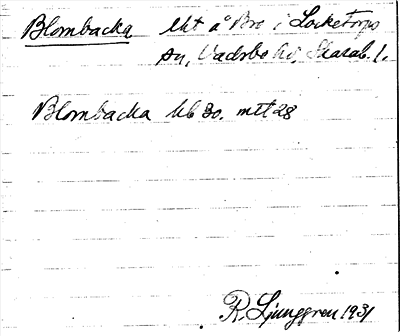 Blombacka lht å Bro i Locketorps
sn, Vadsbo hd, Skarab. l.
Blombacka kb 30. mtt 28
R. Ljunggren 1931